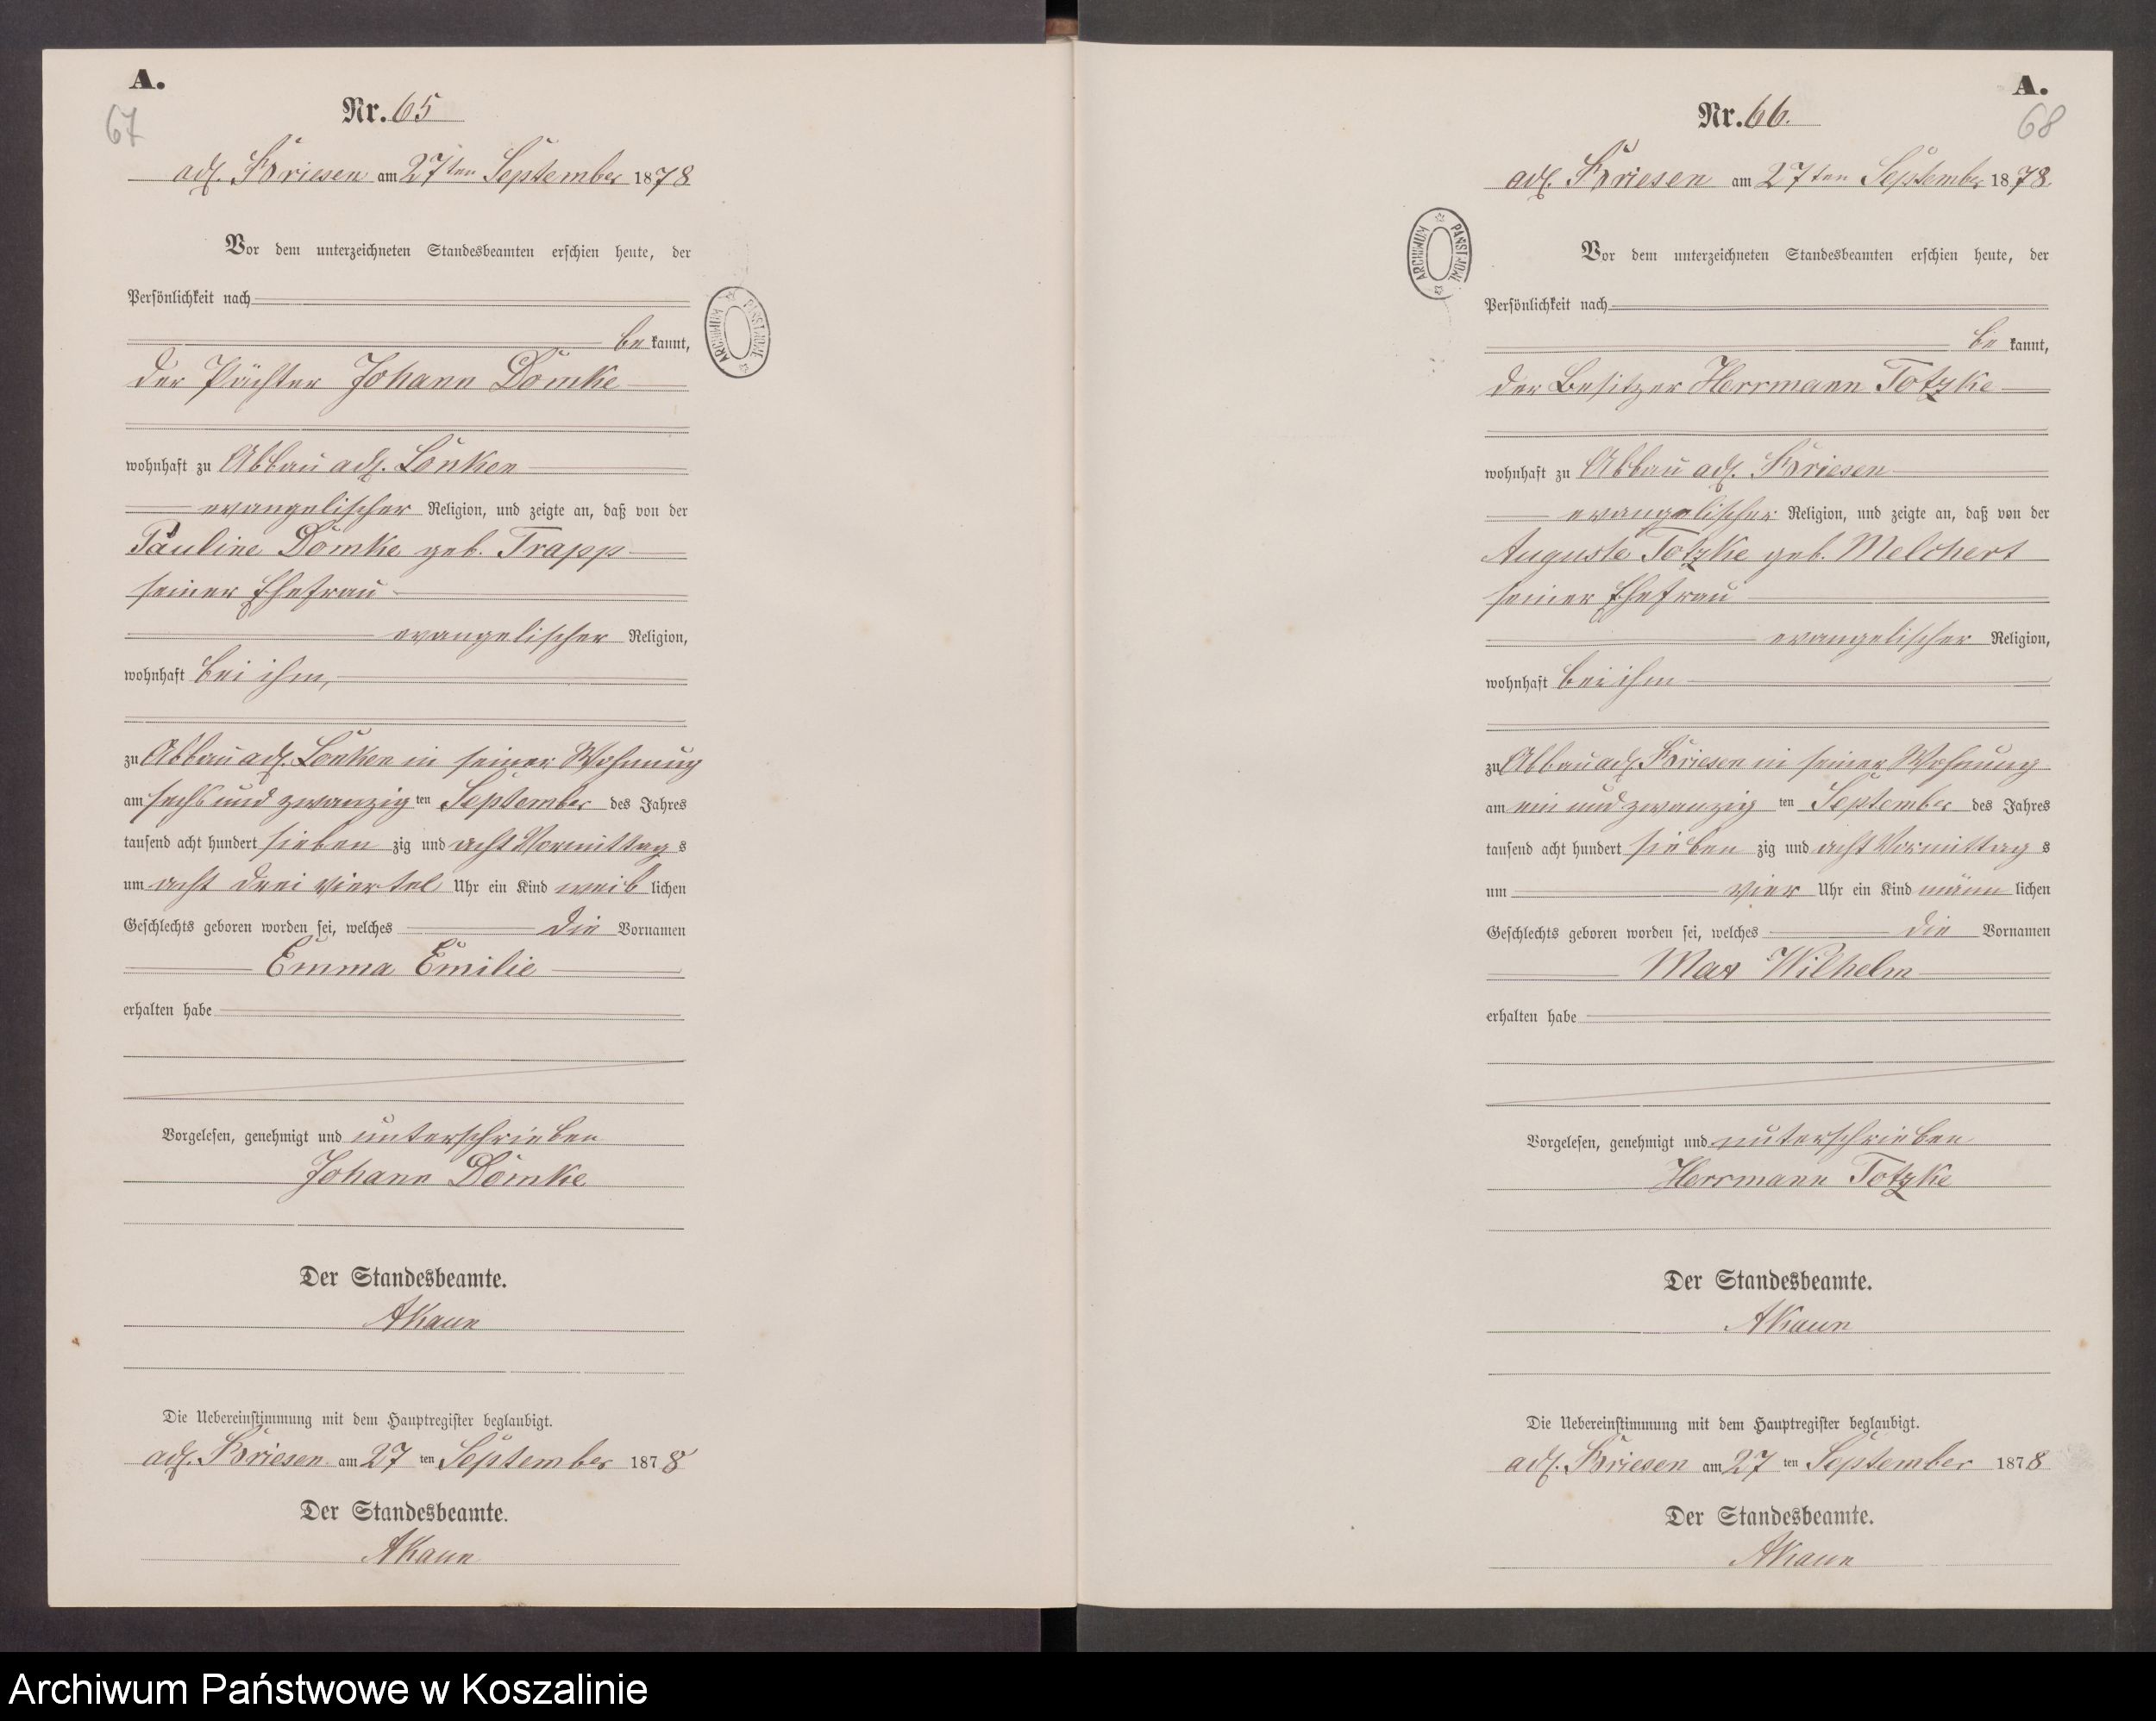 A.
67
Nr. 65
adl. Briesen am 27ten September 1878
Vor dem unterzeichneten Standesbeamten erschien heute, der
Persönlichkeit nach
be kannt,
der Pächter Johann Domke
wohnhaft zu Abbau adl. Lonken
evangelischer Religion, und zeigte an, daß von der
Pauline Domke geb. Trapp
seiner Ehefrau
evangelischer Religion,
wohnhaft bei ihm,
zu Abbau adl. Lonken in seiner Wohnung
am sechs und zwanzig ten September des Jahres
tausend acht hundert sieben zig und acht Vormittag s
um acht drei viertel Uhr ein Kind weib lichen
Geschlechts geboren worden sei, welches die Vornamen
Emma Emilie
erhalten habe
Vorgelesen, genehmigt und unterschrieben
Johann Domke
Der Standesbeamte.
AKaun
Die Uebereinstimmung mit dem Hauptregister beglaubigt.
adl. Briesen am 27 ten September 1878
Der Standesbeamte.
AKaun
ARCHIWUM PAŃSTWOWE
A.
68
Nr. 66.
adl. Briesen am 27ten September 1878.
Vor dem unterzeichneten Standesbeamten erschien heute, der
Persönlichkeit nach
be kannt,
der Besitzer Herrmann Totzke
wohnhaft zu Abbau adl. Briesen
evangelischer Religion, und zeigte an, daß von der
Auguste Totzke geb. Melchert
seiner Ehefrau
evangelischer Religion,
wohnhaft bei ihm
zu Abbau adl. Briesen in seiner Wohnung
am ein und zwanzig ten September des Jahres
tausend acht hundert sieben zig und acht Vormittag s
um vier Uhr ein Kind männ lichen
Geschlechts geboren worden sei, welches die Vornamen
Max Wilhelm
erhalten habe
Vorgelesen, genehmigt und unterschrieben
Herrmann Totzke
Der Standesbeamte.
AKaun
Die Uebereinstimmung mit dem Hauptregister beglaubigt.
adl. Briesen am 27 ten September 1878
Der Standesbeamte.
AKaun
ARCHIWUM PAŃSTWOWE
Archiwum Państwowe w Koszalinie